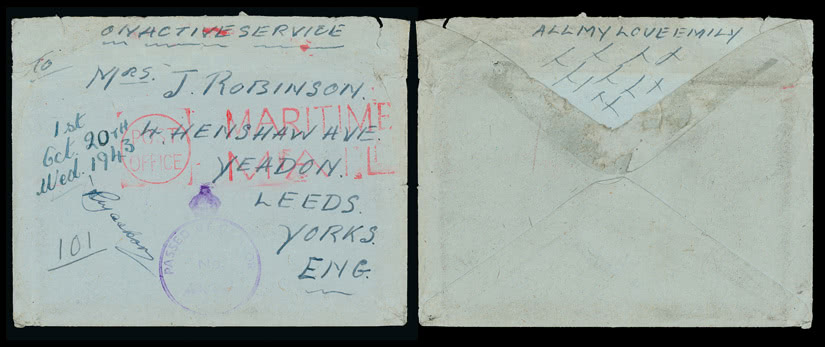 ON ACTIVE SERVICE
TO
MRS. J. ROBINSON.
POST
OFFICE
MARITIME
MAIL
4 HENSHAW AVE.
YEADON.
LEEDS.
YORKS.
ENG.
1st
Oct. 20TH
Wed. 1943
101
PASSED
No.
ALL MY LOVE EMILY
X X X X
X X X X
X X